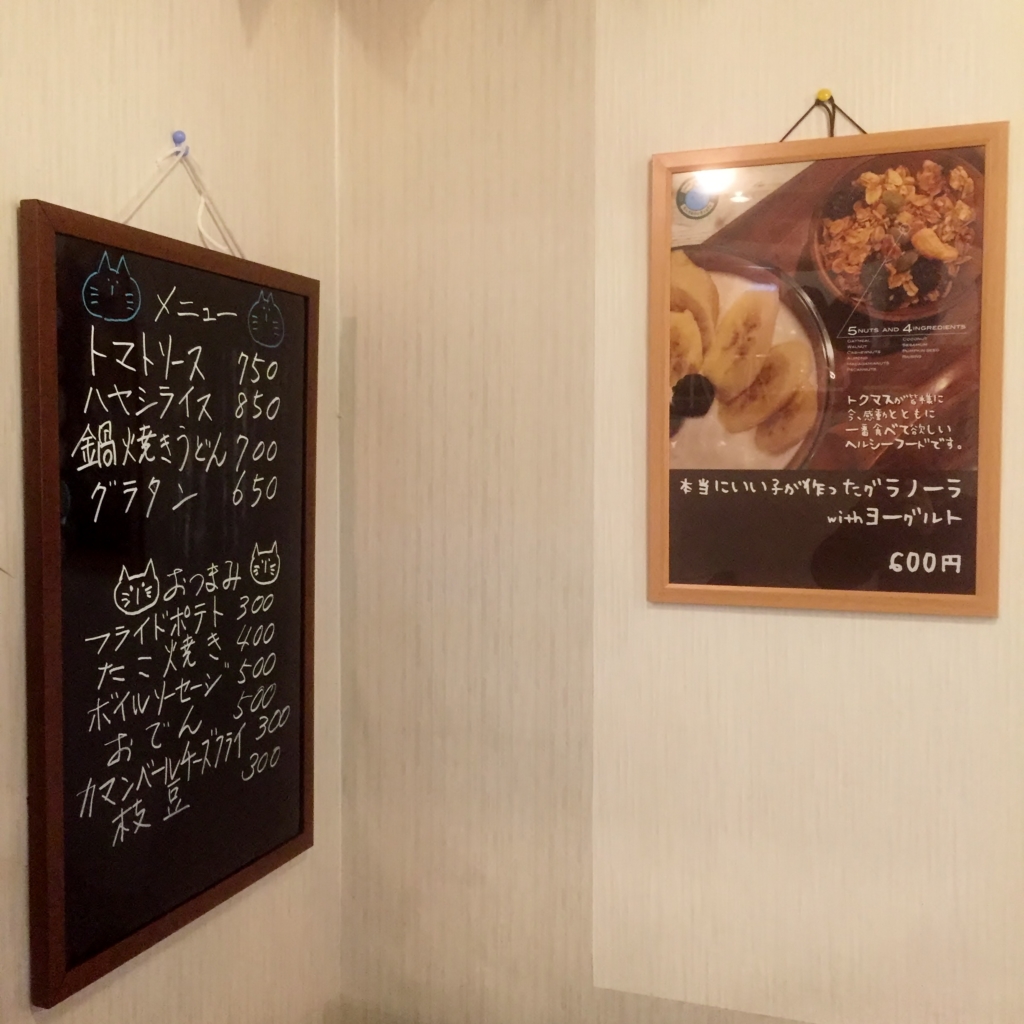 メニュー
トマトソース 750
ハヤシライス 850
鍋焼きうどん 700
グラタン 650
おつまみ
フライドポテト 300
たこ焼き 400
ボイルソーセージ 500
おでん 500
カマンベールチーズフライ 300
枝豆 300
5NUTS AND 4INGREDIENTS
トクマスが皆様に
今、感動とともに
一番食べて欲しい
ヘルシーフードです。
本当にいい子が作ったグラノーラ
withヨーグルト
600円